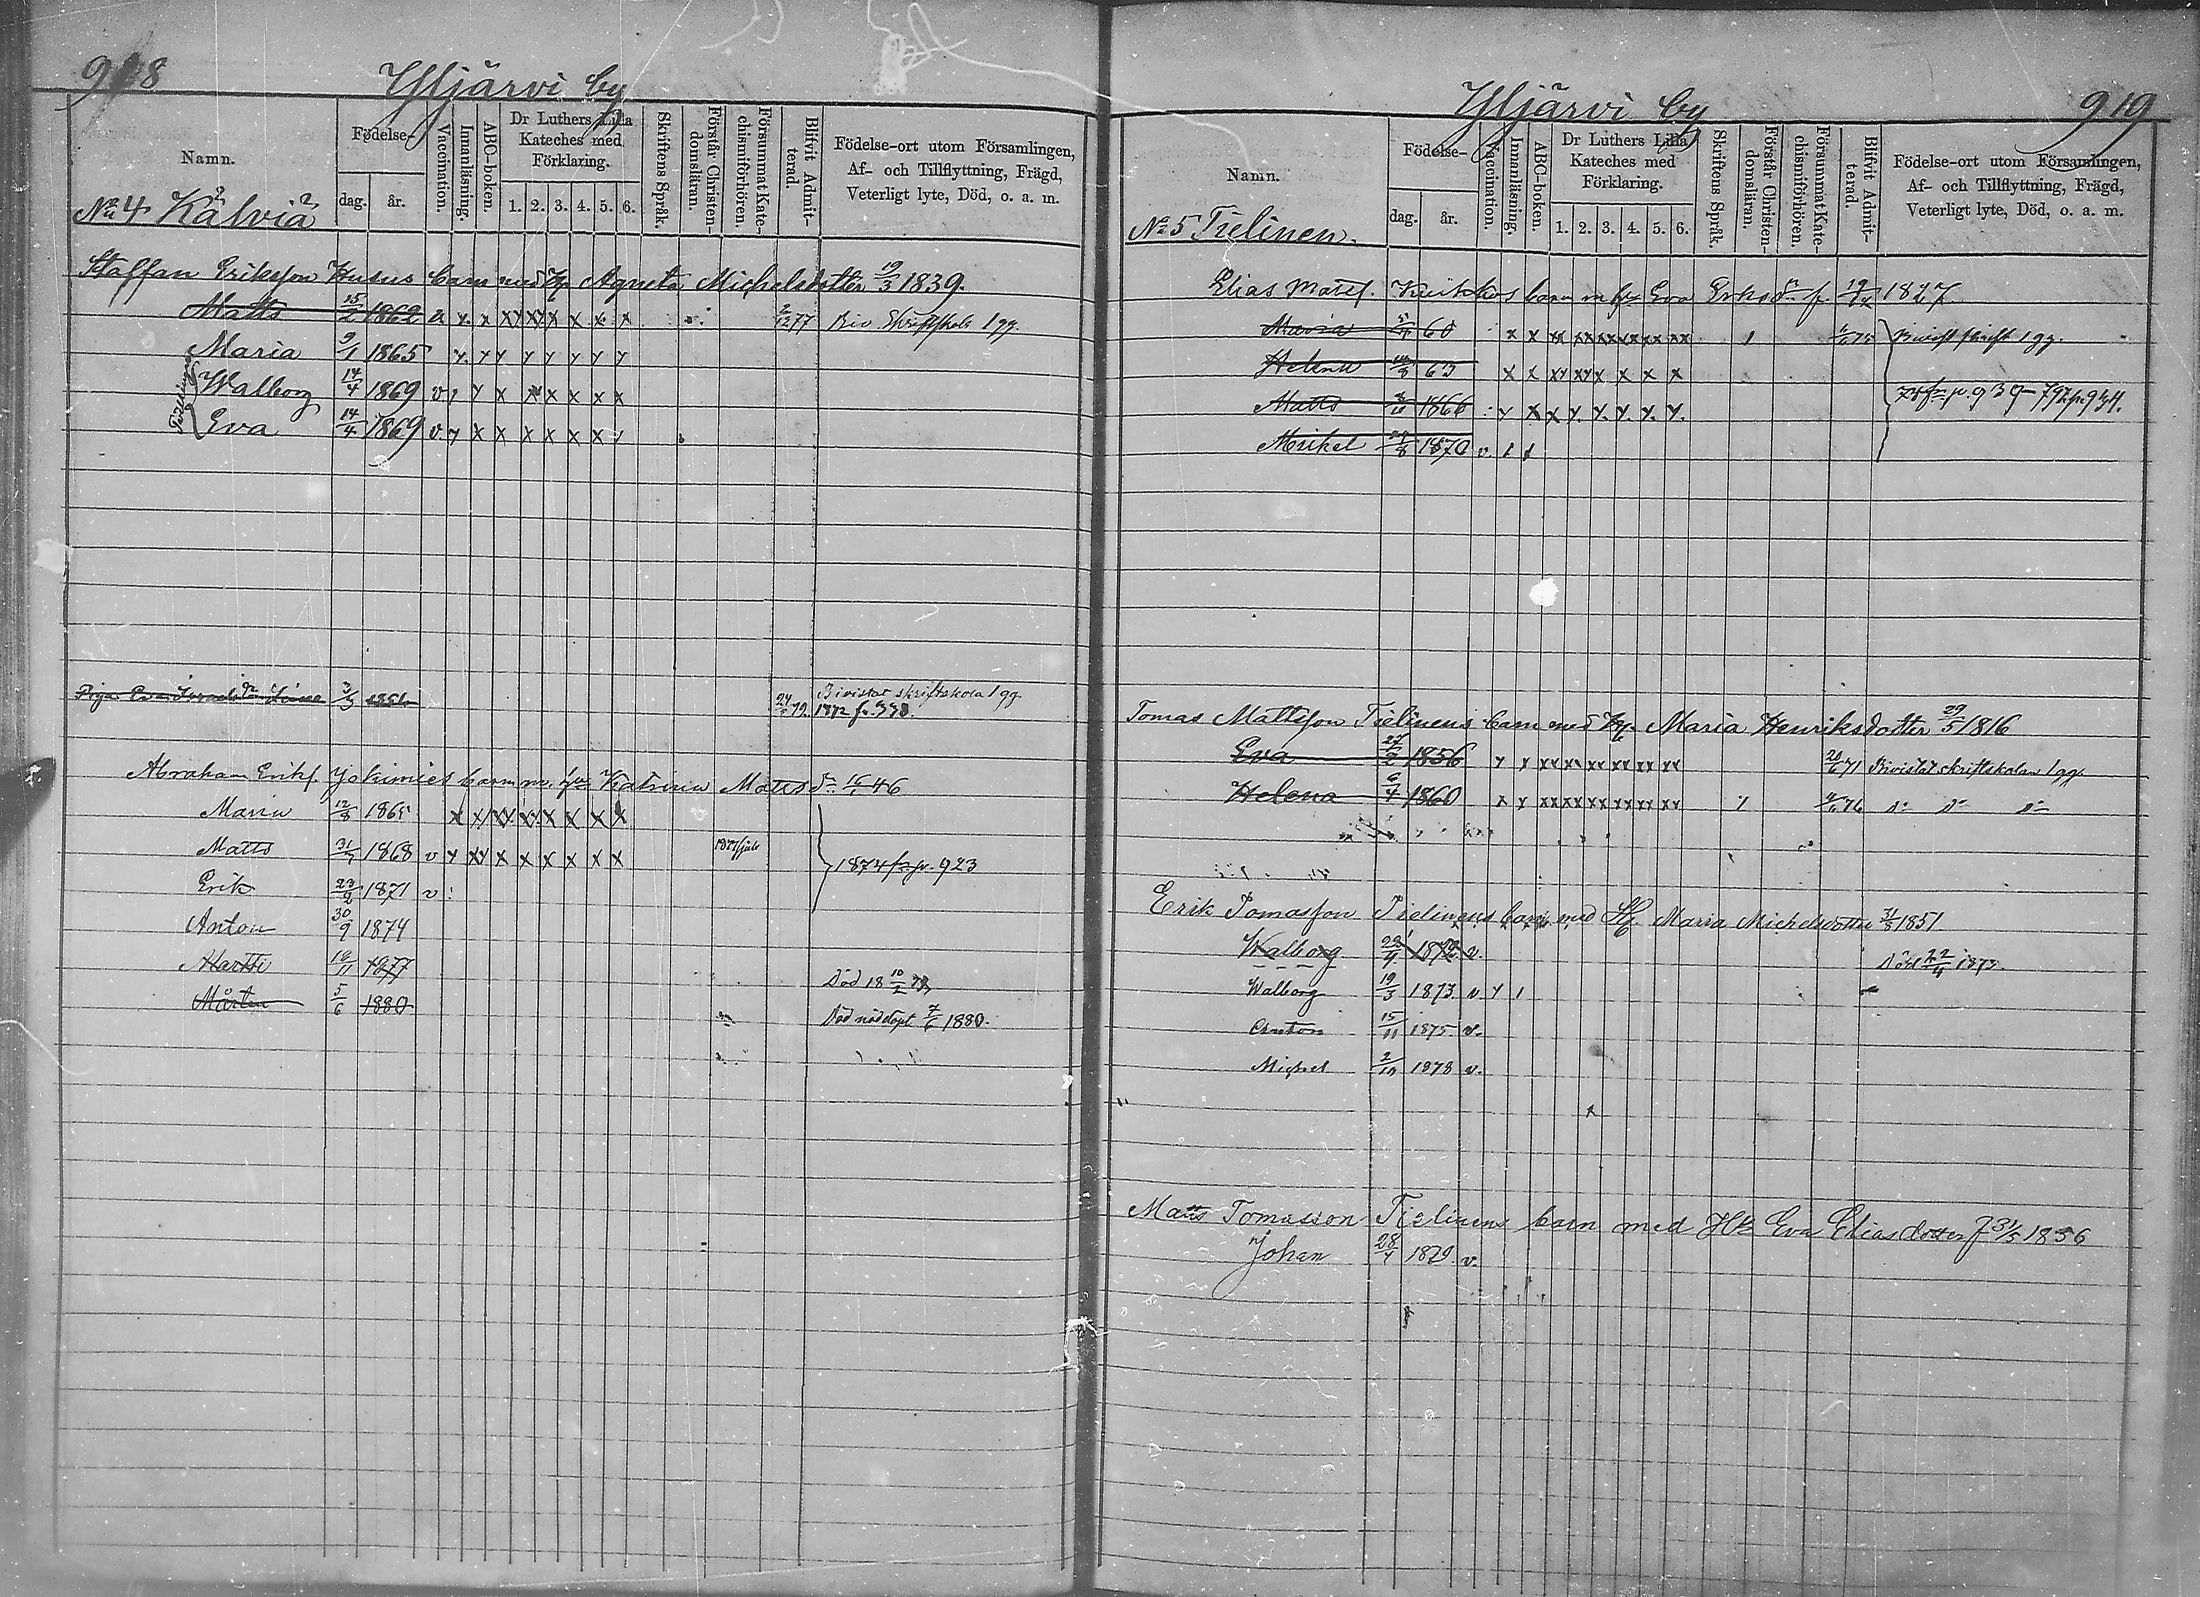 918
Yljärvi by
Namn.
Födelse-
dag.
år.
Vaccination.
Innanläsning.
ABC-boken.
Dr Luthers Lilla Kateches med Förklaring.
1. 2. 3. 4. 5. 6.
Skriftens Språk.
Förstår Christen-domsläran.
Försummat Kate-chismiförhören.
Blifvit Admit-terad.
Födelse-ort utom Församlingen,
Af- och Tillflyttning, Frägd,
Veterligt lyte, Död, o. a. m.
No 4 Kälviä
Staffan Eriksson barn med Hu Agneta Michelsdotter 19/3 1839.
Matts 15/2 1862 v. x x xx xx x x x x 77 Biv. Skriftskola 1 gg.
Maria 9/1 1865 x. x x x x x x x
Walborg 14/4 1869 v x x x x x x x
Eva 14/4 1869 v x x x x x x x
Piga Eva 3/3 Bivistat skriftskola 1 gg.
1872 fr.
Abraham Eriks. barn m. hu Katrina Matts dr 46
Maria 12/8 1865 x x xx xx x x x x
Matts 31/7 1868 v x xx x x x x x x 1874 fr. p. 923
Erik 23/2 1871 v
Anton 30/9 1874
Martti 18/11 1877 Död 18 10/2 78
Mårten 5/6 1880 Död nöddöpt 7/6 1880.
Yljärvi by
919
Namn.
Födelse-
dag.
år.
Vaccination.
Innanläsning.
ABC-boken.
Dr Luthers Lilla Kateches med Förklaring.
1. 2. 3. 4. 5. 6.
Skriftens Språk.
Förstår Christen-domsläran.
Försummat Kate-chismiförhören.
Blifvit Admit-terad.
Födelse-ort utom Församlingen,
Af- och Tillflyttning, Frägd,
Veterligt lyte, Död, o. a. m.
No 5 Tielinen.
Elias Matts. barn m hu Eva Eriks dr f. 1827.
Maria 60 x x xx xx xx xx xx xx 1 75 1 gg.
Helena 63 x x xx xx x x x x
Matts 1866 x x x x. x. x. x. x. p. 939 p. 934.
Mikel 1870 v.
Tomas Mattsson Tielinens barn med Hu Maria Henriksdotter 29/5 1816
Eva 27/2 1856 x x xx xx xx xx xx xx 20/6 71 Bivistat skriftskolan 1 gg.
Helena 6/4 1860 x x xx xx xx xx xx xx 4/6 76 Do Do Do
Erik Tomasson Tielinens barn med Hu Maria Michelsdotter 31/8 1851
Walborg 1872 v. Död 22/4 1873.
Walborg 19/3 1873 v
Anton 15/11 1875 v.
Michel 2/10 1878 v.
Matts Tomasson Tielinens barn med Hu Eva Eliasdotter f 31/5 1856
Johan 28/4 1879 v.